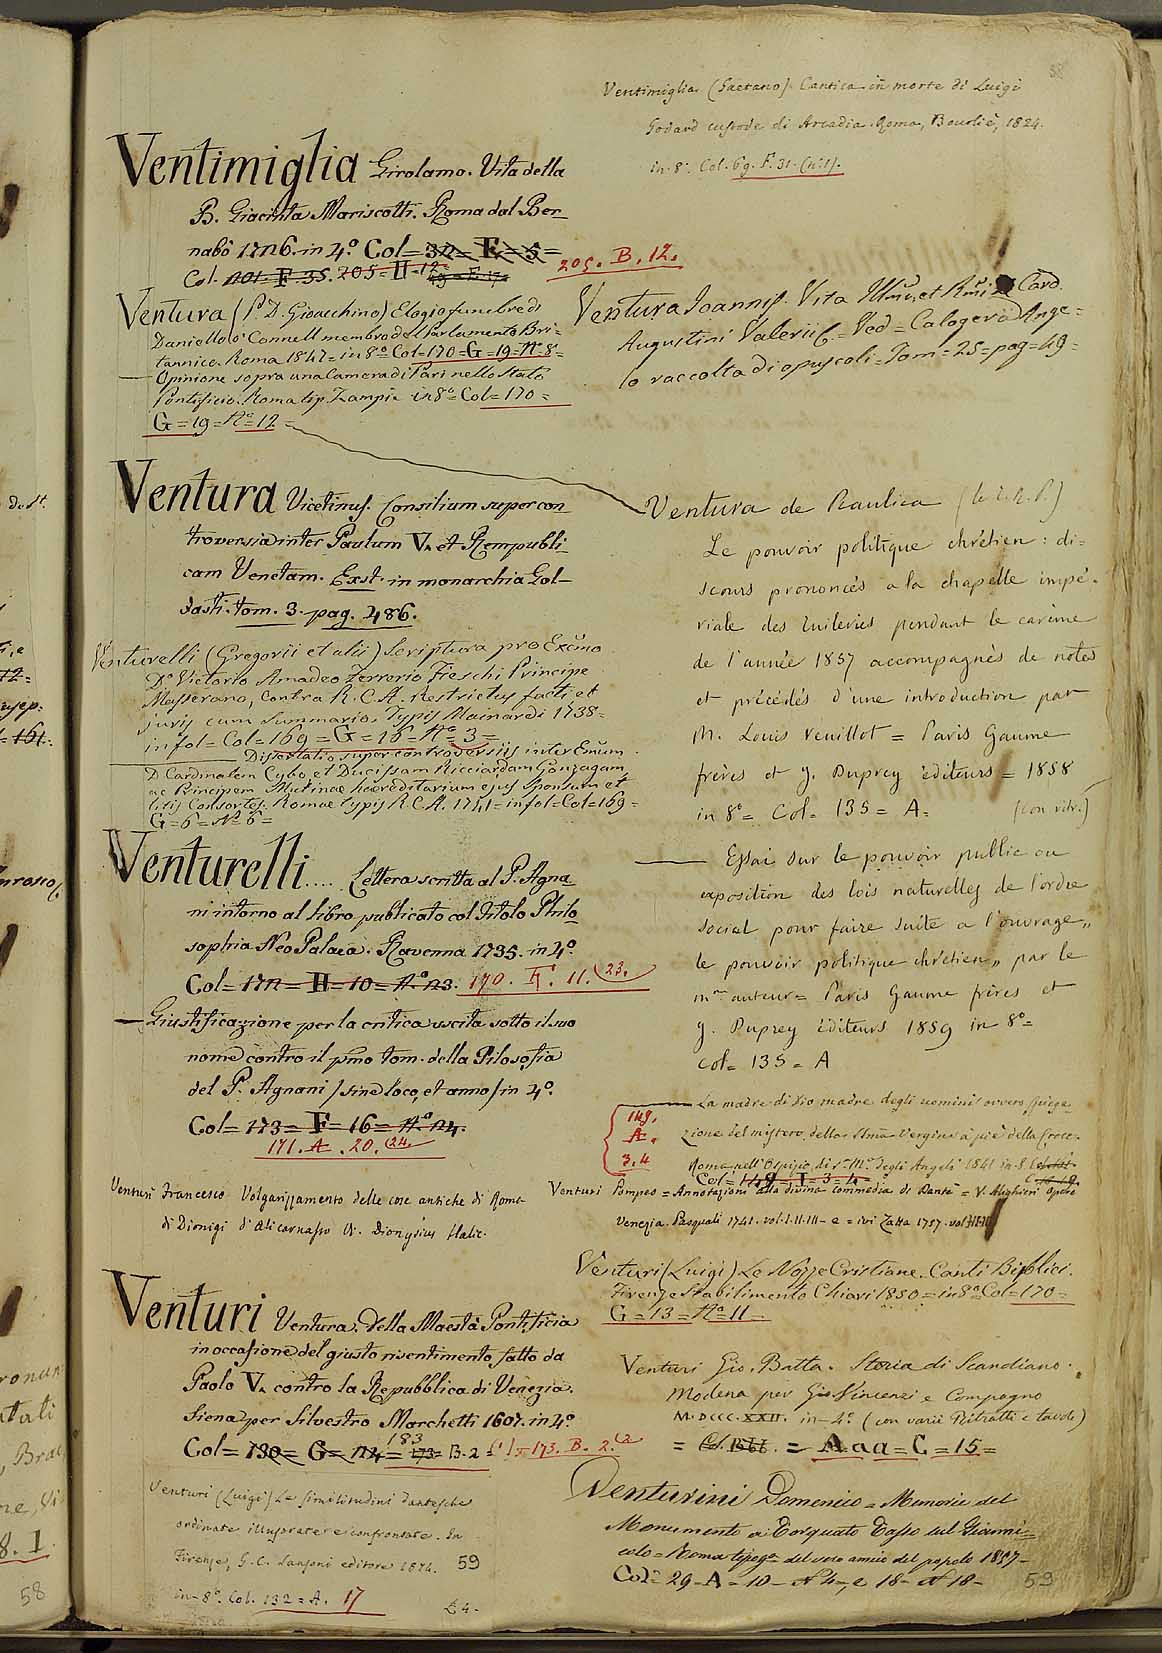 Ventimiglia (Gaetano). Cantica in morte di Luigi
Godard custode di Arcadia. Roma, Bourlié, 1824.
in-8°. Col. 69. F. 31. (n° 1).
Ventimiglia Girolamo. Vita della
B. Giacinta Mariscotti. Roma dal Ber-
nabò 1726. in 4.° Col= 32= E= 5=
Col. 201. F. 35. 205= H=12=
205. B. 12.
Ventura (P. D. Gioacchino) Elogio funebre di
Daniello o' Connell membro del Parlamento Bri-
tannico. Roma 1847= in 8.° Col=170=G=19=N.°8=
— Opinione sopra una Camera di Pari nello Stato
Pontificio. Roma tip. Zampi= in 8°= Col=170=
G=19=N.°=12=
Ventura Vicetinus. Consilium super con
troversia inter Paulum V. et Rempubli
cam Venetam. Exst. in monarchia Gol-
dasti. tom. 3. pag. 486.
Venturelli (Gregorii et alii) Scriptura pro Exc͠mo
D.° Victorio Amadeo Ferrerio Fieschi Principe
Messerano, contra R. C. A. Restrictus facti et
juris cum summario. Typis Mainardi 1738=
in fol= Col=169=G=16=N.°=3=
— Dissertatio super controversiis inter Em͠um
D. Cardinalem Cybo, et Ducissam Ricciardam Gonzagam
ac Principem Mutinae haereditarium ejus Sponsum et
litis Consortes. Romae typis R.C.A. 1741=in fol=Col=169=
G=6=N.°6=
Venturelli .... Lettera scritta al P. Agna
ni intorno al libro publicato col titolo Philo
sophia Neo Palaea. Ravenna 1735. in 4.°
Col= 172= H= 10= N.° 23. 170. F. 11. (23.
— Giustificazione per la critica uscita sotto il suo
nome contro il p͠mo tom. della Filosofia
del P. Agnani /sine loco, et anno/ in 4.°
Col= 173= F= 16= N.° 24.
171. A. 20. (24.
Venturi Francesco Volgarizzamento delle cose antiche di Roma
di Dionigi d'Alicarnasso V. Dionysius Halic.
Venturi Ventura. Della Maestà Pontificia
in occasione del giusto risentimento fatto da
Paolo V. contro la Repubblica di Venezia.
Siena per Silvestro Marchetti 1607. in 4°
183
Col= 130= G= 124= 173= B. 2 173. B. 2. (2
Venturi (Luigi) Le similitudini dantesche
ordinate illustrate e confrontate. In
Firenze, G. C. Sansoni editore 1874. 59
in-8°. Col. 132=A. 17
Ventura Joannis. Vita Illmi, et Rmi Card.
Augustini Valerii= Ved= Calogerà Ange=
lo raccolta di opuscoli= Tom=25=pag=49=
Ventura de Raulica
Le pouvoir politique chrétien : di=
scours prononcés a la chapelle impé-
riale des Tuileries pendant le carème
de l'année 1857 accompagnés de notes
et précédés d'une introduction par
M. Louis Veuillot = Paris Gaume
frères et J. Duprey éditeurs = 1858
in 8°= Col= 135= A= (con ritr.)
— Essai sur le pouvoir public ou
exposition des lois naturelles de l'ordre
social pour faire suite a l'ouvrage „
le pouvoir politique chrétien „ par le
m^me auteur= Paris Gaume frères et
J. Duprey éditeurs 1859 in 8°=
Col= 135= A
— La madre di Dio madre degli uomini ovvero spiega-
zione del mistero della SSma Vergine a piè della Croce.
Roma nell' Ospizio di S. M.a degli Angeli 1841 in-8
Col=149= I=3=4=
149.
A.
3.4
Venturi Pompeo= Annotazioni alla divina commedia di Dante = V. Alighieri Opere
Venezia. Pasquali 1741. vol. I. II. III - e = ivi Zatta 1757. vol
Venturi (Luigi) Le Nozze Cristiane. Canti Biblici.
Firenze Stabilimento Chiari 1850= in 8°=Col=170=
G=13=N.°11=
Venturi Gio. Batta. Storia di Scandiano.
Modena per Gio. Vincenzi e Compagno
M.DCCC.XXII. in-4° (con varii Ritratti e tavole)
= = Aaa=C=15=
Venturini Domenico= Memorie del
Monumento a Torquato Tasso sul Giani=
colo= Roma tipog.a del vero amico del popolo 1857-
Col= 29-A-10- N 4-, e 18- N 18-
59
58